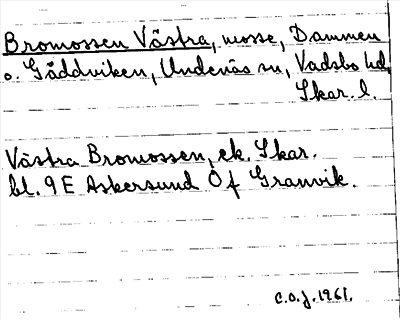 Bromossen Västra, mosse, Dammen
o. Gäddviken, Undenäs sn, Vadsbo hd
Skar. l.
Västra Bromossen, ek. Skar.
bl. 9 E Askersund Ö f Granvik.
C.O.J. 1961.